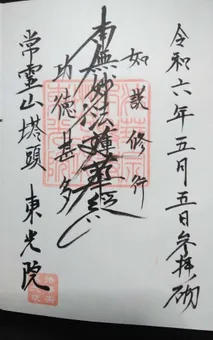 令和六年五月五日参拝砌
如説修行
南無妙法蓮華経
功徳甚多
常霊山塔頭 東光院